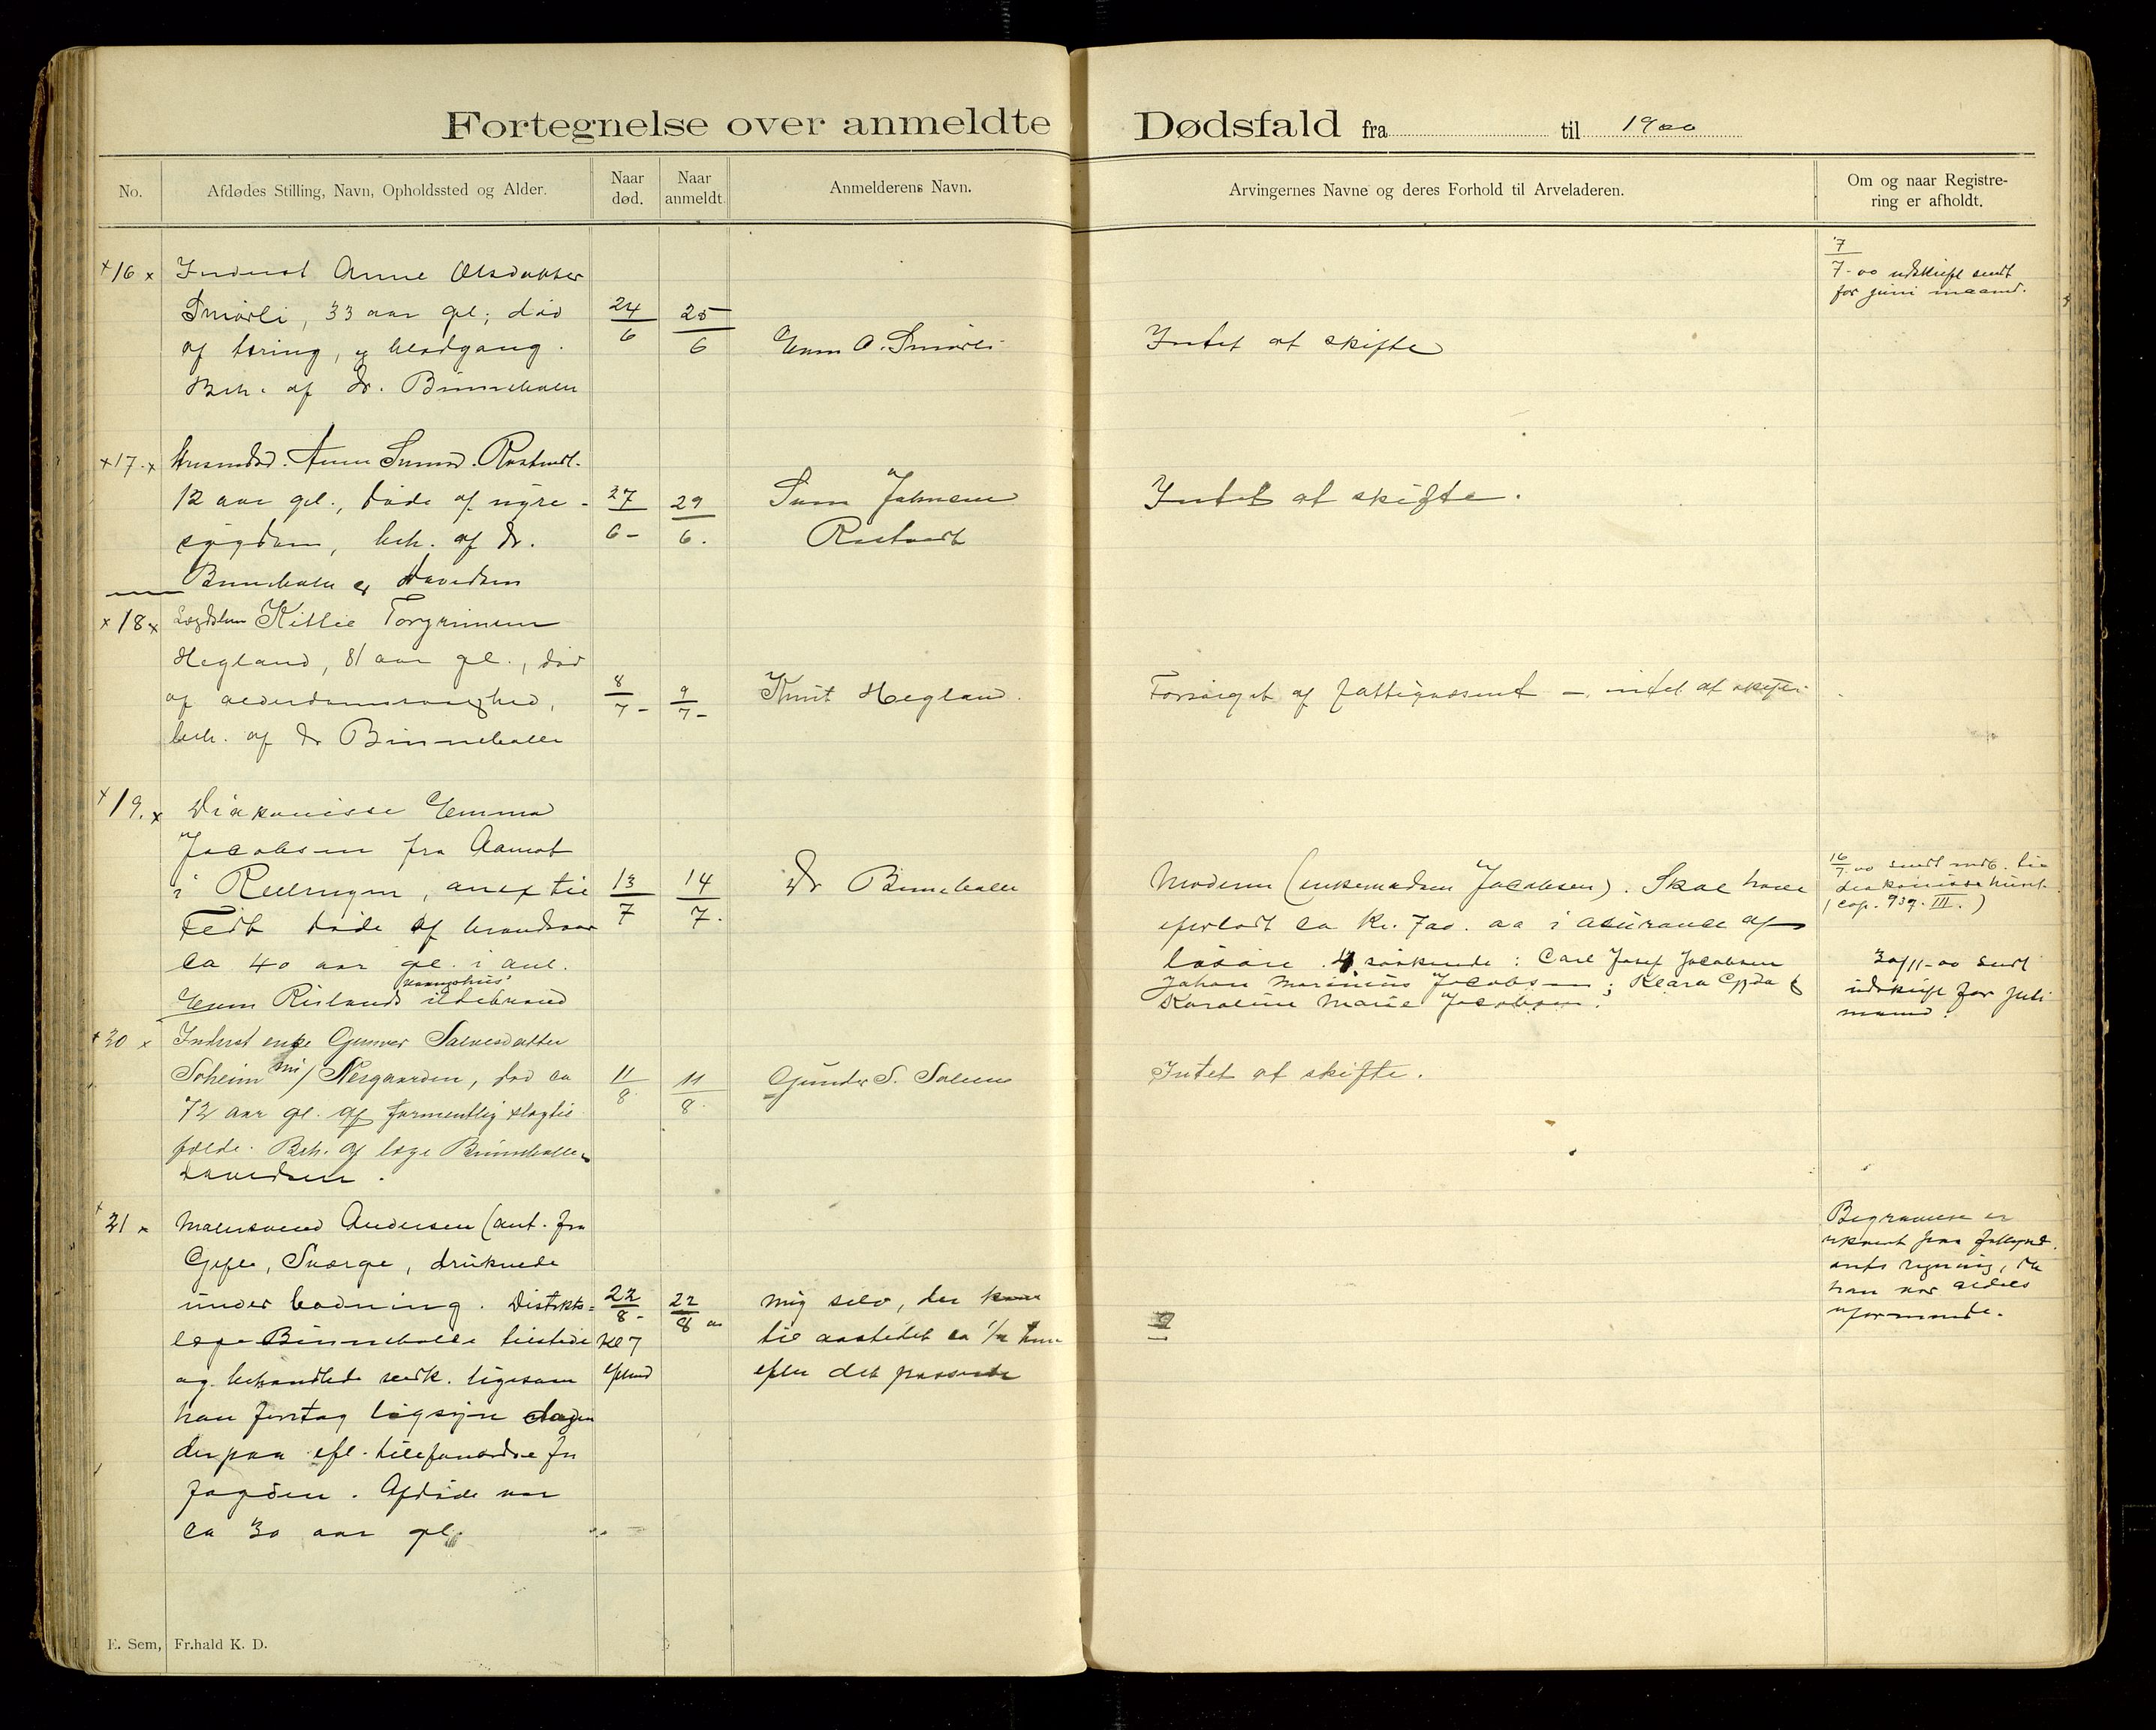 Fortegnelse over anmeldte Dødsfald fra til 1900
No.
Afdødes Stilling, Navn, Opholdssted og Alder.
Naar død.
Naar anmeldt.
Anmelderens Navn.
Arvingernes Navne og deres Forhold til Arveladeren.
Om og naar Registre-
ring er afholdt.
16 Inderst Anne Olsdatter
Smørli, 33 aar gl., død
af tæring, og blodgang.
Beh. af Dr. Binneballe
24/6
25/6
Even O. Smørli
Intet at skifte
7/7-00 udskrift sendt
for juni maaned.
17. Anne
12 aar gl., døde af nyre-
sygdom, beh. af dr.
Binneballe og Davidsen
27/6-
29/6.
Johnsen
Intet at skifte.
18 Lægdslem Kittil Torgrimsen
Hegland, 81 aar gl., død
af alderdomssvaghed,
beh. af dr Binneballe
8/7-
9/7-
Knut Hegland.
Forsørget af fattigvæsenet — intet at skifte.
19. Diakonisse Emma
Jacobsen fra Aamot
i, anex til
døde af brandsaar
ca 40 aar gl. i anl.
vaaningshus
Even Rislands ildebrand
13/7
14/7.
Dr Binneballe
Moderen (enkemadam Jacobsen). Skal have
efterladt ca Kr. 700.00 i assurance af
løsøre. 4 søskende: Carl Josef Jacobsen
Johan Marinius Jacobsen; Klara Gyda &
Karoline Marie Jacobsen.
16/7.00 sendt medd. til
diakonissehuset
(cop. 939. III.)
30/11-00 sendt
udskrift for juli
maaned.
20 Inderst enke Gunver Salvesdatter
Solheim / Nesgaarden, død ca
72 aar gl. af formentlig slagtil-
fælde. Beh. af læge Binneballe &
Davidsen.
11/8.
11/8.
Gunder S.
Intet at skifte.
21 Malersvend Andersen (ant. fra
Gefle, Sverge, druknede
under badning. Distrikts-
læge Binneballe tilstede
og behandlede vedk. ligesom
han foretog ligsyn dagen
derpaa eft. telefonordre fra
fogden. Afdøde var
ca 30 aar gl.
22/8-
Kl 7
efterm
22/8 00
Mig selv, der kom
til aastedet ca 1/2 time
efter det passerede
Begravelse er
paa
regning, da
han var aldeles
uformuende.
E. Sem, Fr.hald K. D.